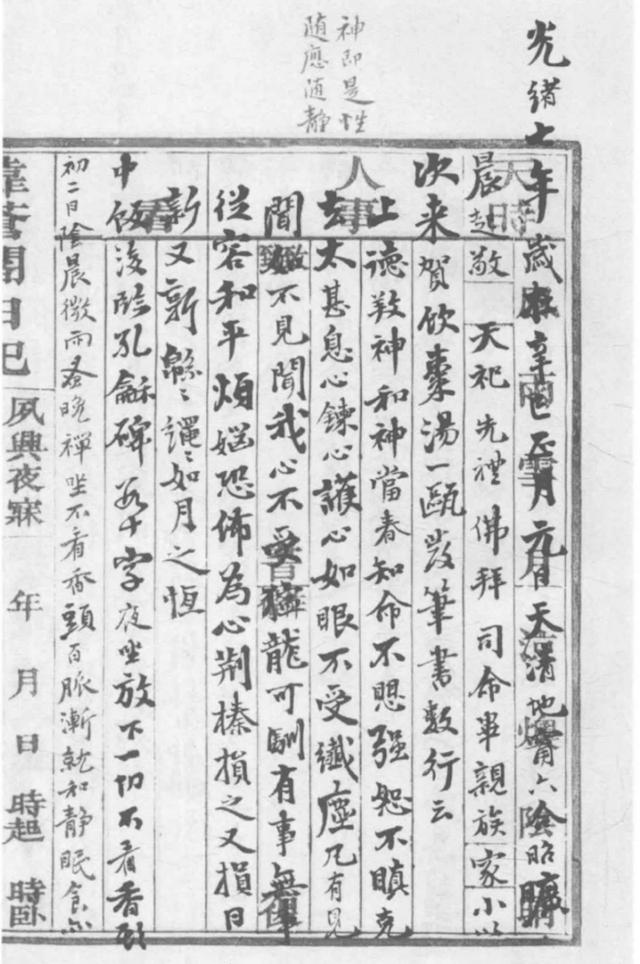 神即是性
随應随静
光緒七年歲在辛巳正月元日天清地甯六陰昭曠
晨起敬天祀先禮佛拜司命畢親族家小以
次来賀飲棗湯一甌發筆書數行云
上德致神和神當春知命不憩强恕不瞋克
去太甚息心鍊心護心如眼不受纖塵凡有見
聞如不見聞我心不受獰龍可馴有事無事
從容和平煩惱恐怖為心荆榛損之又損日
新又新緜緜繩繩如月之恆
中飯後臨孔龢碑數十字夜坐放下一切不看香頭
初二日陰晨微雨蚤晚禪坐不看香頭百脈漸就和静眠食亦
日記
夙興夜寐 年 月 日 時起 時卧
天時
人事